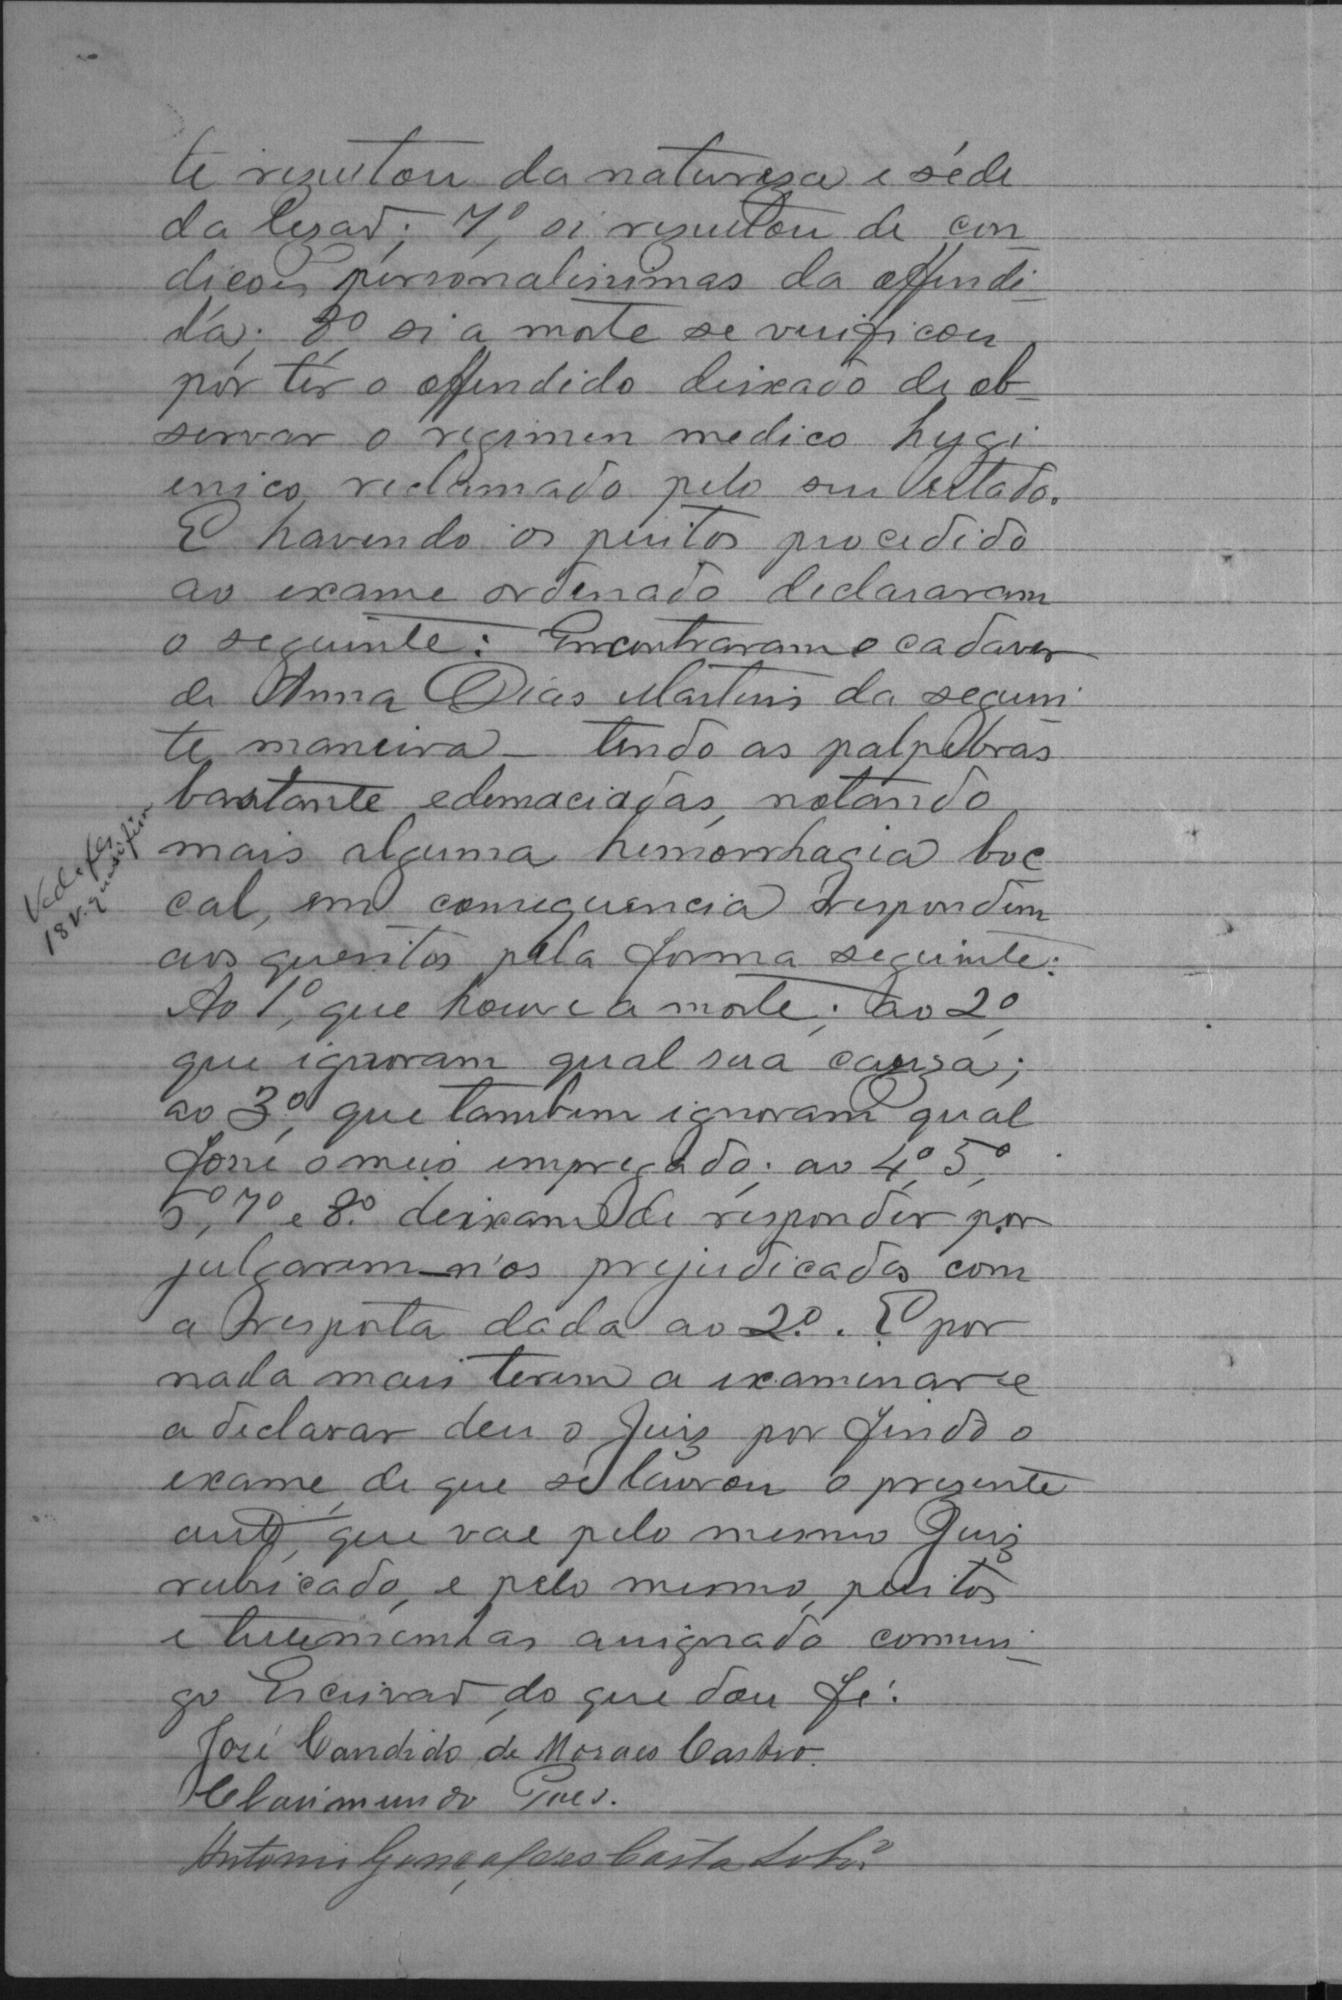 te rezultou da natureza e séde
da lezaõ; 7º, si rezultou de con-
dicoēs personalissimas da offendi-
da; 8º si a morte se verificou
por ter o offendido deixado de ob-
servar o regimen medico hygi-
enico, reclamado pelo seu estado.
E havendo os peritos procedido
ao exame ordenado declararam
o seguinte: Encontraram o cadaver
de Anna Dias Martins da seguin-
te maneira — tendo as palpebras
bastante edemaciadas, notando
mais alguma hemorrhagia buc-
cal, em consequencia respondem
aos quesitos pela forma seguinte:
Ao 1º, que houve a morte; ao 2º,
que ignoram qual sua cauza;
ao 3º, que tambem ignoram qual
fosse o meio empregado; ao 4º, 5º,
5º, 7º e 8º. deixam de responder por
julgarem-n'os prejudicados com
a resposta dada ao 2º. E por
nada mais terem a examinar e
a declarar deu o Juiz por findo o
exame, de que se lavrou o prezente
auto, que vae pelo mesmo Juiz
rubricado, e pelo mesmo, peritos
e testemunhas assignado commi-
go Escrivaõ, do que dou fé.
José Candido de Moraes Castro.
Clarimundo Paes.
Antonio Gonçalves Costa Lobo
Vede fls
18 v.